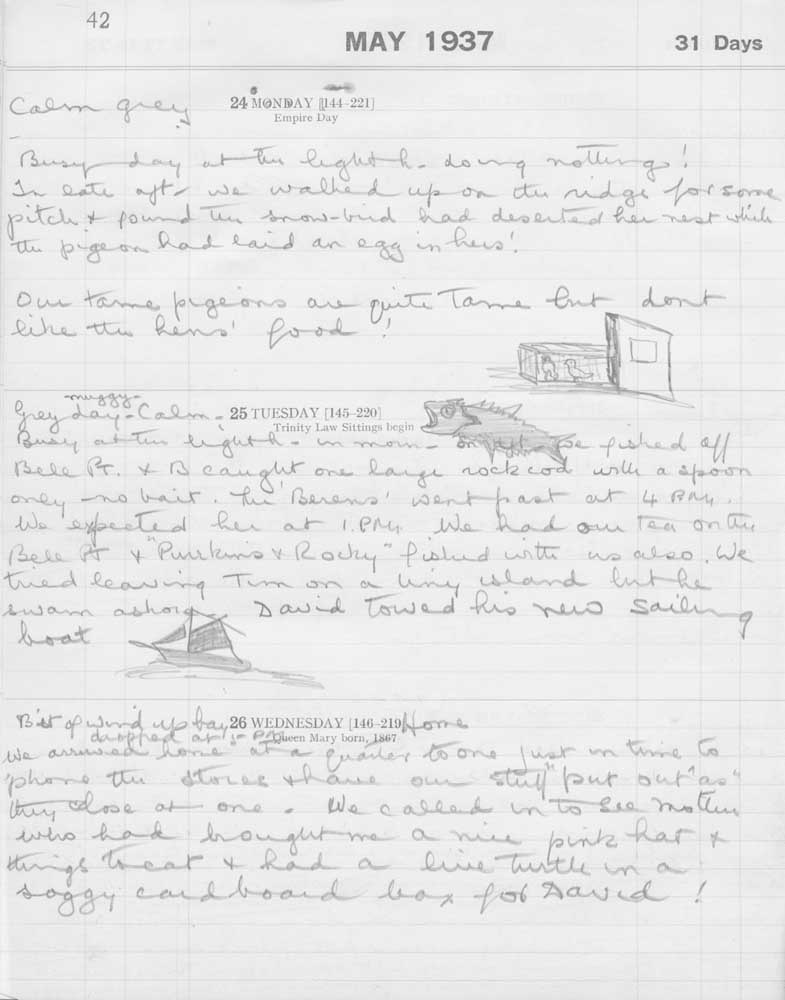 42
MAY 1937
31 Days
24 MONDAY [144–221]
Empire Day
Calm grey
Busy day at the light h- doing nothing!
In late aft- we walked up on the ridge for some
pitch & found the snow-bird had deserted her nest while
the pigeon had laid an egg in hers!
Our tame pigeons are quite tame but dont
like the hens' food!
Grey muggy day - Calm -
25 TUESDAY [145–220]
Trinity Law Sittings begin
Busy at the light h- in morn- on aft we fished off
Bele Pt. & B caught one large rock cod with a spoon
only - no bait. The 'Berens' went past at 4 P.M.
We expected her at 1. P.M. We had our tea on the
Bele Pt & "Purkins & Rocky" fished with us also. We
tried leaving Tim on a tiny island but he
swam ashore David towed his new sailing
boat
26 WEDNESDAY [146–219]
Queen Mary born, 1867
Bit of wind up bay Home
dropped at 1- PM
We arrived home at a quarter to one just in time to
'phone the stores & have our stuff "put out" as
they close at one. We called in to see Mother
who had brought me a nice pink hat &
things to eat & had a live turtle in a
soggy cardboard box for David!